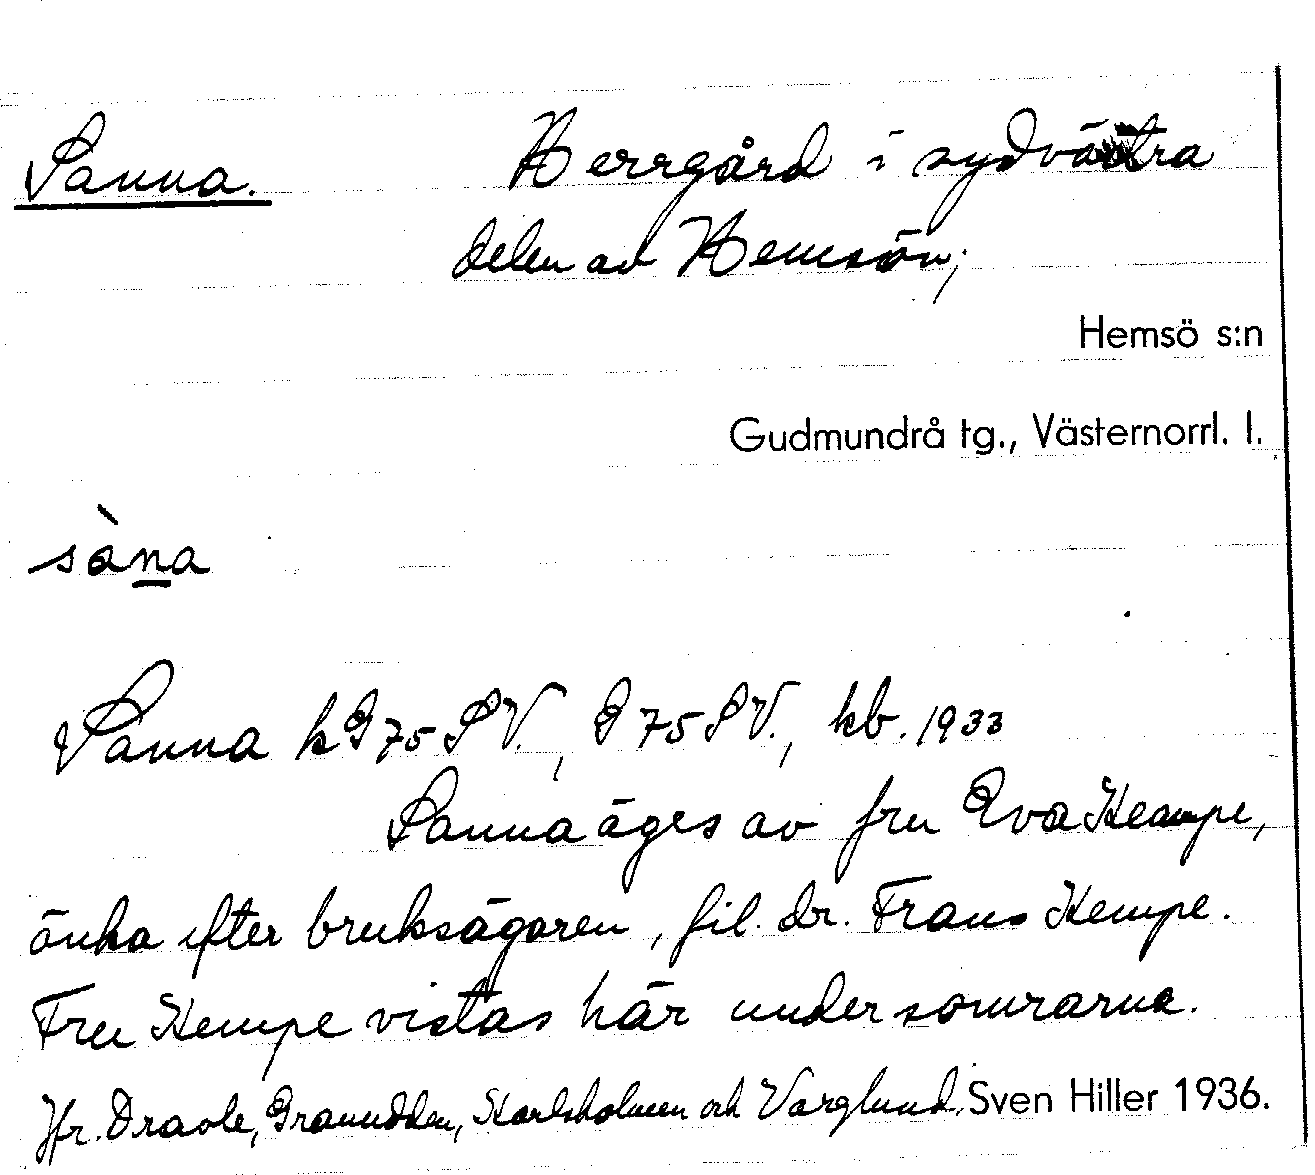 Sanna. Herrgård i sydvästra
delen av Hemsön;
Hemsö s:n
Gudmundrå tg., Västernorrl. l.
sàna
Sanna k G 75 SV., G 75 SV., kb. 1933
Sanna äges av fru Eva Kempe,
änka efter bruksägaren, fil. dr. Frans Kempe.
Fru Kempe vistas här under somrarna.
Jfr. Dravle, Granudden, Karlsholmen och Varglund. Sven Hiller 1936.